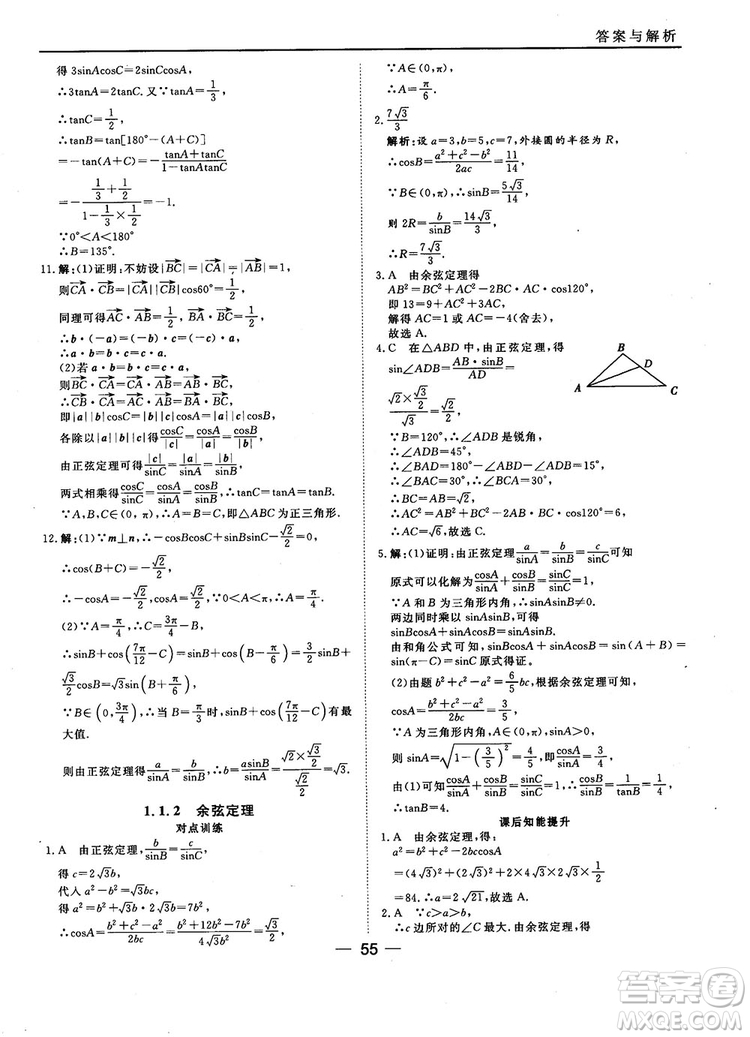 答案与解析
得 3sinAcosC=2sinCcosA,
∴3tanA=2tanC. 又∵tanA=1/3,
∴tanC=1/2.
∴tanB=tan[180°-(A+C)]
=-tan(A+C)=-(tanA+tanC)/(1-tanAtanC)
=-(1/3+1/2)/(1-1/3×1/2)=-1.
∵0°<A<180°
∴B=135°.
11. 解:(1)证明:不妨设|BC|=|CA|=|AB|=1,
则CA·CB=|CA||CB|cos60°=1/2.
同理可得AC·AB=1/2, BC·BA=1/2.
∴b·(-a)=(-b)·c=(-a)·c.
∴a·b=b·c=a·c.
(2)若 a·b=b·c=a·c
则BC·CA=CA·AB=BC·AB.
∴CB·CA=AC·AB=BC·BA.
即|a||b|cosC=|b||c|cosA=|a||c|cosB.
各除以|a||b||c|得cosC/|c|=cosA/|a|=cosB/|b|.
由正弦定理可得|c|/sinC=|a|/sinA=|b|/sinB,
两式相乘得cosC/sinC=cosA/sinA=cosB/sinB, ∴tanC=tanA=tanB.
∵A,B,C∈(0,π), ∴A=B=C,即△ABC 为正三角形.
12. 解:(1)∵m⊥n, ∴-cosBcosC+sinBsinC-√2/2=0,
∴cos(B+C)=-√2/2.
∴-cosA=-√2/2, cosA=√2/2, ∵0<A<π, ∴A=π/4.
(2)∵A=π/4, ∴B+C=3π/4, ∴C=3π/4-B,
∴sinB+cos(C-7π/12)=sinB+cos(π/6-B)=3/2sinB+
√3/2cosB=√3sin(B+π/6),
∵B∈(0,3π/4), ∴当 B+π/6=π/2 时, sinB+cos(C-7π/12)有最
大值.
则由正弦定理得a/sinA=b/sinB, ∴b=asinB/sinA=(√2×√3/2)/(√2/2)=√3.
1.1.2 余弦定理
对点训练
1. A 由正弦定理, b/sinB=c/sinC,
得 c=2√3b,
代入 a²-b²=√3bc,
得 a²-b²=√3b·2√3b=6b², a²=7b²
∴cosA=(b²+c²-a²)/2bc=(b²+12b²-7b²)/4√3b²=√3/2.
∵A∈(0,π),
∴A=π/6.
2. 7√3/3
解析:设 a=3,b=5,c=7,外接圆的半径为 R,
∴cosB=(a²+c²-b²)/2ac=11/14
∵B∈(0,π), ∴sinB=5√3/14,
则 2R=b/sinB=14√3/3,
∴R=7√3/3.
3. A 由余弦定理得
AB²=BC²+AC²-2BC·AC·cos120°
即 13=9+AC²+3AC,
解得 AC=1 或 AC=-4(舍去),
故选 A.
4. C 在△ABD 中,由正弦定理,得
sin∠ADB=AB·sinB/AD=
(√2×√3/2)/√3=√2/2,
∵B=120°, ∴∠ADB 是锐角,
∴∠ADB=45°
∴∠BAD=180°-∠ADB-B=15°,
∴∠BAC=30°,∠C=30°,
∴BC=AB=√2,
∴AC=√6,故选 C.
B
D
A
C
5. 解:(1)证明:由正弦定理a/sinA=b/sinB=c/sinC可知
原式可以化解为cosA/sinA+cosB/sinB=sinC/sinC=1.
∵A 和 B 为三角形内角, ∴sinAsinB≠0.
两边同时乘以 sinAsinB,可得
sinBcosA+sinAcosB=sinAsinB.
由和角公式可知,sinBcosA+sinAcosB=sin(A+B)=
sin(π-C)=sinC 原式得证.
(2)由题 b²+c²-a²=6/5bc,根据余弦定理可知,
cosA=(b²+c²-a²)/2bc=3/5.
∵A 为三角形内角,A∈(0,π),sinA>0,
则 sinA=√(1-(3/5)²)=4/5,即cosA/sinA=3/4.
由(1)可知cosA/sinA+cosB/sinB=sinC/sinC=1, ∴cosB/sinB=1/tanB=1/4.
∴tanB=4.
课后知能提升
1. A 由余弦定理,得:
a²=b²+c²-2bccosA
=(4√3)²+(2√3)²+2×4√3×2√3×1/2
=84. ∴a=2√21,故选 A.
2. A ∵c>a>b,
∴c 边所对的∠C 最大. 由余弦定理,得
55
作业答案圈
MXQE.COM